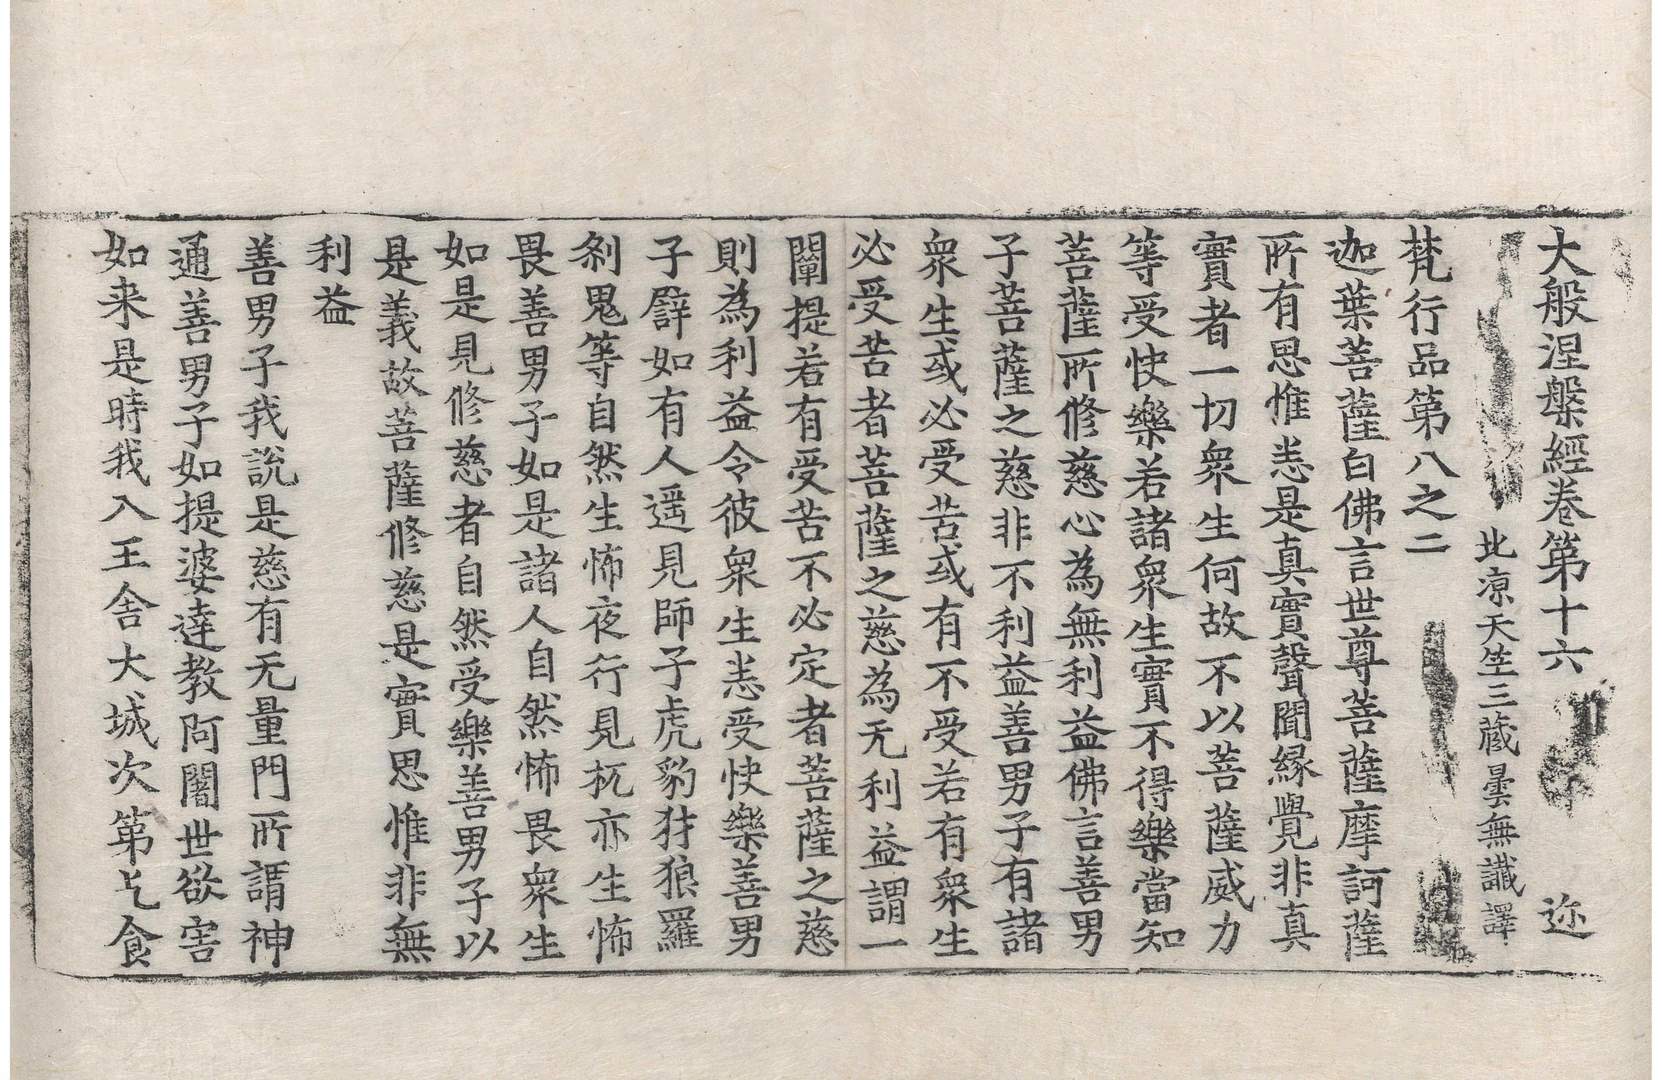 大般涅槃經卷第十六　迩
北凉天竺三藏曇無讖譯
梵行品第八之二
迦葉菩薩白佛言世尊菩薩摩訶薩
所有思惟悉是真實聲聞緣覺非真
實者一切衆生何故不以菩薩威力
等受快樂若諸衆生實不得樂當知
菩薩所修慈心為無利益佛言善男
子菩薩之慈非不利益善男子有諸
衆生或必受苦或有不受若有衆生
必受苦者菩薩之慈為无利益謂一
闡提若有受苦不必定者菩薩之慈
則為利益令彼衆生悉受快樂善男
子譬如有人遥見師子虎豹犲狼羅
刹鬼等自然生怖夜行見杌亦生怖
畏善男子如是諸人自然怖畏衆生
如是見修慈者自然受樂善男子以
是義故菩薩修慈是實思惟非無
利益
善男子我説是慈有无量門所謂神
通善男子如提婆達教阿闍世欲害
如来是時我入王舍大城次第乞食